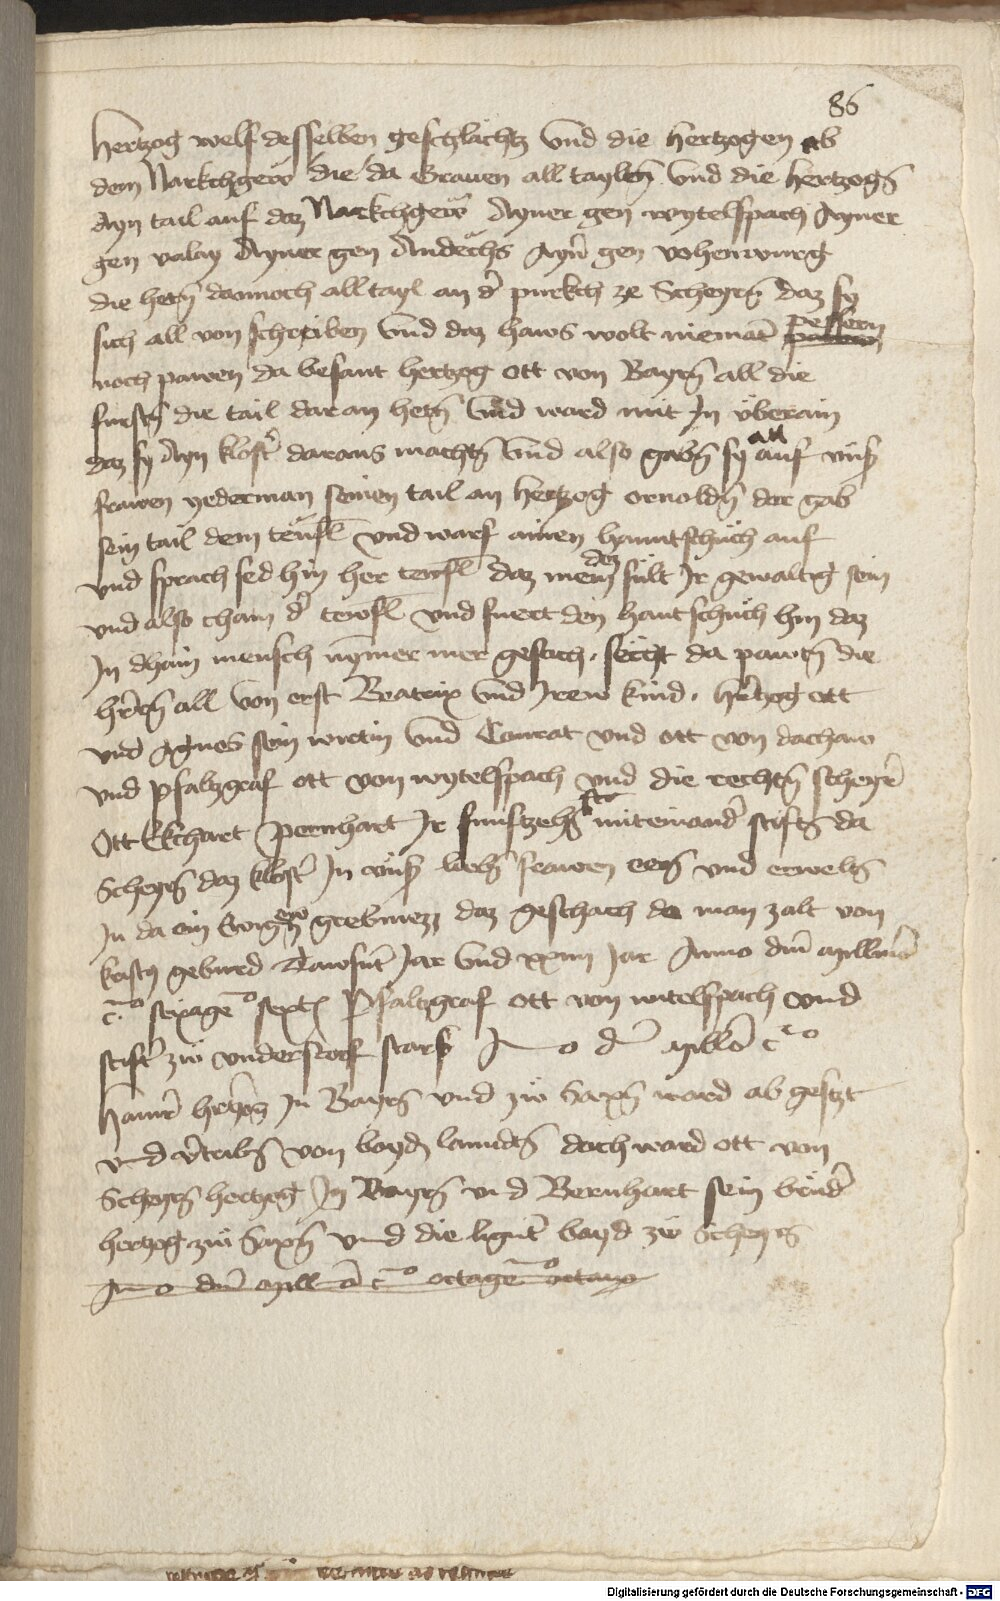 86
hertzog welf desselben geschlächtz vnd die hertzogen ab
dem Narkchgew die da Grauen all taylen vnd die hertzogn
Ayn tail auf daz Narkchgew Ayner gen wytelspach Ayner
gen valay Ayner gen Andechs Ayn gen vohenwurg
die hetn dannoch all tayl an der purkch ze Scheyrn daz sy
sich all von schreiben vnd daz haws wolt niemant pessern
noch pawen da besant hertzog ott von Bayrn all die
fürstn die tail daran hetn vnd ward mit In überain
daz sy Ayn kloster daraus machtn vnd also gabn sy all auf vnser
frawen yederman seinen tail an hertzog ornoldn der gab
sein tail dem teufl vnd warf ainen hanntschüch auf
vnd sprach sed hin her tewfl daz mein daz sült Ir gewaltig sein
vnd also cham der tewfl vnd fuert den hantschüch hin daz
In dhain mensch nymer mer gesach. secht da pawtn die
herrn all von erst Beatrix vnd Irew kind. hertzog ott
vnd Agnes sein wirtin vnd Conrat vnd ott von dachaw
vnd Pfaltzgraf ott von wytelspach vnd die rechtn scheyrer
Ott Ekchart Pernhart Ir funftzehn miteinander stiftn da
Scheyrn daz kloster In vnser liebn frawen eern vnd erweltn
In da ein ewign grebnuzz daz geschach do man zalt von
kristi geburd Tawsent Jar vnd xxiiii Jar Anno dni Millimo
c.o sexage.o sexto Pfaltzgraf ott von witelspach vnd
stifter zw vnderstorf starb Ano dni Millo c.o
hainr hertzog In Bayrn vnd zw Saxn ward ab gesetzt
vnd vertribn von bayden lanndn doch ward ott von
Scheyrn hertzog In Bayrn vnd Bernhart sein brüder
hertzog zw Saxn vnd die ligent bayd zw Scheyrn
Anno dni Millo c.o octage.o octauo
Digitalisierung gefördert durch die Deutsche Forschungsgemeinschaft - DFG